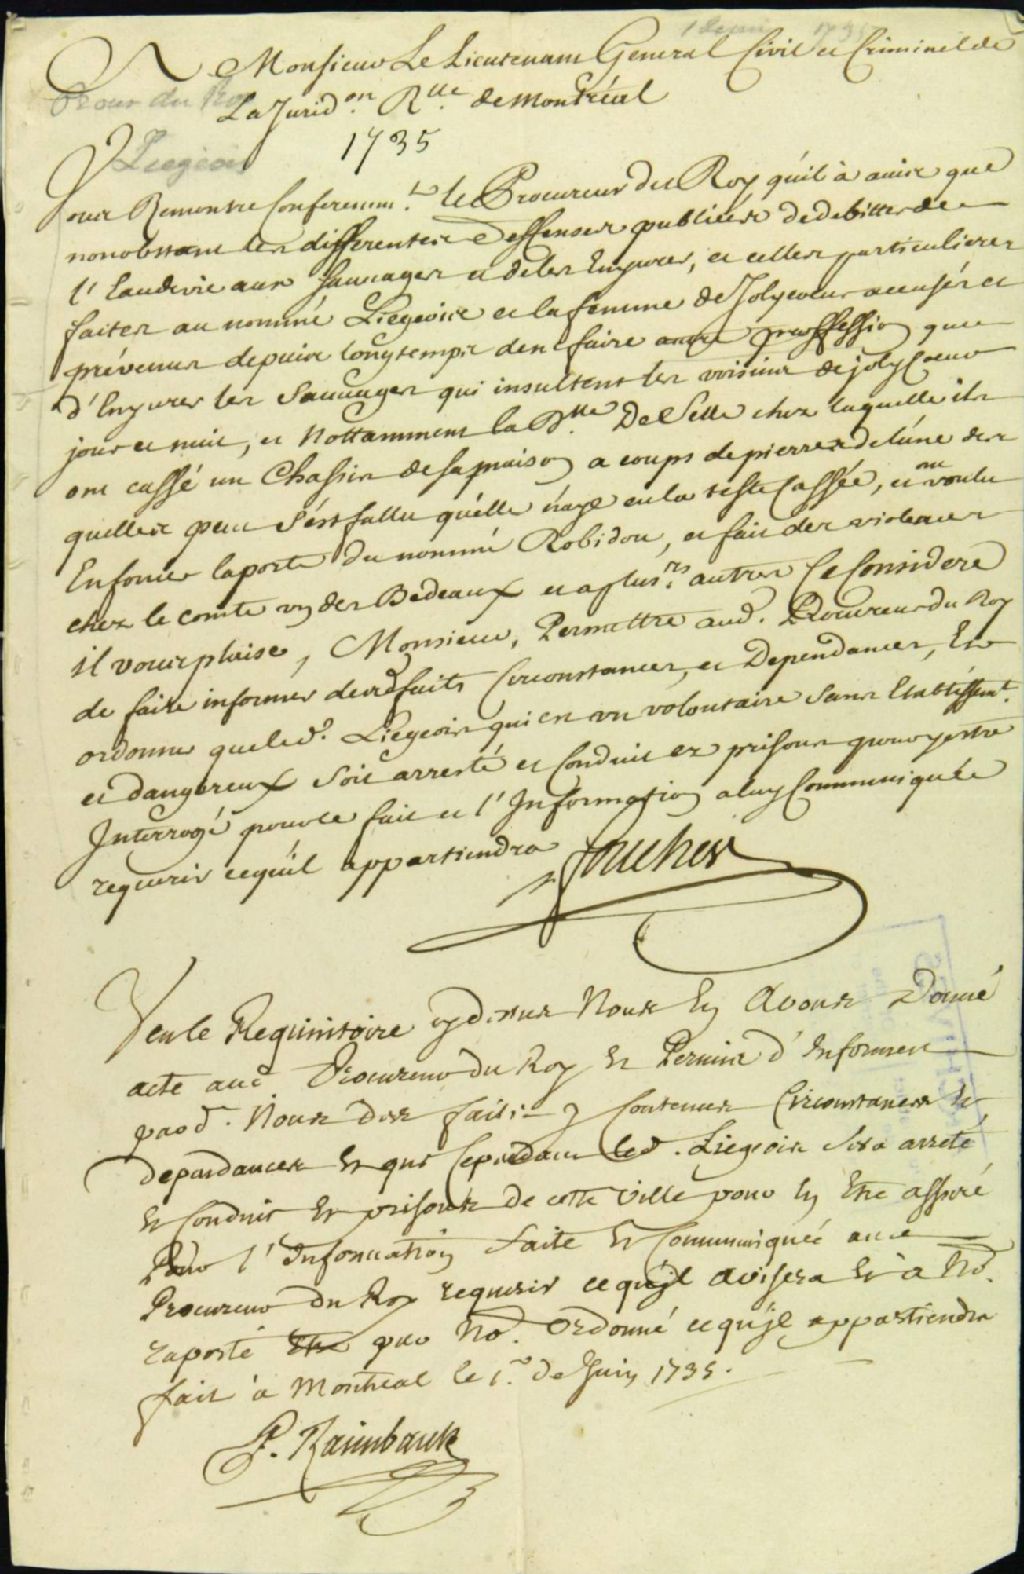 1 Juin 1735
A Monsieur Le Lieutenant General Civil et Criminel de
Procur du Roy
La Jurid.on R.lle de Montréal
1735
Liegeois
Vous Remontre Conferemm.t le Procureur du Roy qu'il à avis que
nonobstant les differentes Deffenses publiées de debitter de
l'Eaudevie aux Sauvages et de les Enyvrer, et celles particulieres
faites au nommé Liegeois et la femme de Jolycoeur accusés et
prévenus depuis longtemps den faire proffession que
d'Enyvrer les Sauvages qui insultent les voisins de jolyCoeur
jour et nuit, et Nottamment la D.lle De Selle chez laquelle ils
ont cassé un Chassis de sa maison a coups de pierres de l'une des
quelles peu s'est fallu qu'elle n'aye eu la teste Cassée, et ont voulu
Enfoncer la porte du nommé Robidou, et fait des violences
chez le comte un des Bedeaux et a plus.rs autres Ce Consideré
il vous plaise, Monsieur, Permettre aud. Procureur du Roy
de faire informer desd. faits Circonstances, et Dependances, Et
ordonner que led. Liegeois qui est un volontaire sans Etablissem.t
et dangereux soit arresté et Conduit ez prisons pour y estre
Interrogé pour ce fait et l'Information a luy Communiquée
requerir ce qu'il appartiendra Foucher
Veu le Requisitoire cy dessus Nous En Avons Donné
acte aud Procureur du Roy et Permis d'Informer
pard. Nous des faits y Contenus Circonstances et
dependances et que Cependant led. Liegeois sera arreté
et Conduit es prisons de cette Ville pour En Etre assuré
Pour l'Information faite et Communiquée au
Procureur du Roy requerir ce qu'jl avisera et à No.
raporté Etre par No. Ordonné ce qu'jl appartiendra
fait à Montreal le 1.er de Juin 1735.
P. Raimbault